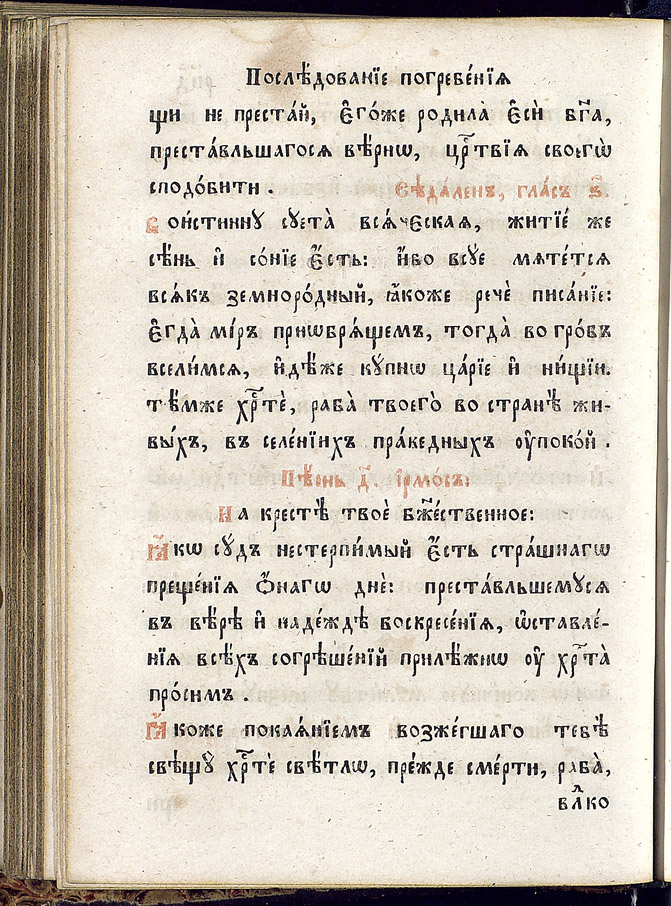 Послѣ́дованїе погребе́нїѧ
щи не преста́й, є҆го́же родила̀ є҆сѝ бг҃а,
преста́вльшагосѧ вѣ́рнѡ, црⷭ҇твїѧ своегѡ̀
сподо́бити .
Сѣда́ленъ, гла́съ ѕ҃.
Вои́стиннꙋ сꙋета̀ всѧ́ческая, житїе́ же
сѣ́нь и҆ со́нїе є҆́сть: и҆́бо всꙋе мѧте́тсѧ
всѧ́къ земноро́дный, ꙗ҆́коже речѐ писа́нїе:
Є҆гда̀ мі́ръ приѡбрѧ́щемъ, тогда̀ во гро́бъ
всели́мсѧ, и҆дѣ́же кꙋ́пнѡ ца́рїе и҆ ни́щїи.
тѣ́мже хрⷭ҇тѐ, раба̀ твоего̀ во странѣ̀ жи-
вы́хъ, въ селе́нїихъ пра́ведныхъ ᲂу҆поко́й .
Пѣ́снь д҃. і҆рмо́съ:
На крестѣ̀ твоѐ бж҃е́ственное:
Ꙗ҆́кѡ сꙋ́дъ нестерпи́мый є҆́сть стра́шнагѡ
преще́нїѧ ѻ҆́нагѡ днѐ: преста́вльшемꙋсѧ
въ вѣ́рѣ и҆ наде́ждѣ воскресе́нїѧ, ѡ҆ставле́-
нїѧ всѣ́хъ согрѣше́нїй прилѣ́жнѡ ᲂу҆ хрⷭ҇та̀
про́симъ .
Ꙗ҆́коже покаѧ́нїемъ возже́гшаго тебѣ̀
свѣщꙋ̀ хрⷭ҇тѐ свѣ́тлѡ, пре́жде сме́рти, раба̀,
влⷣко